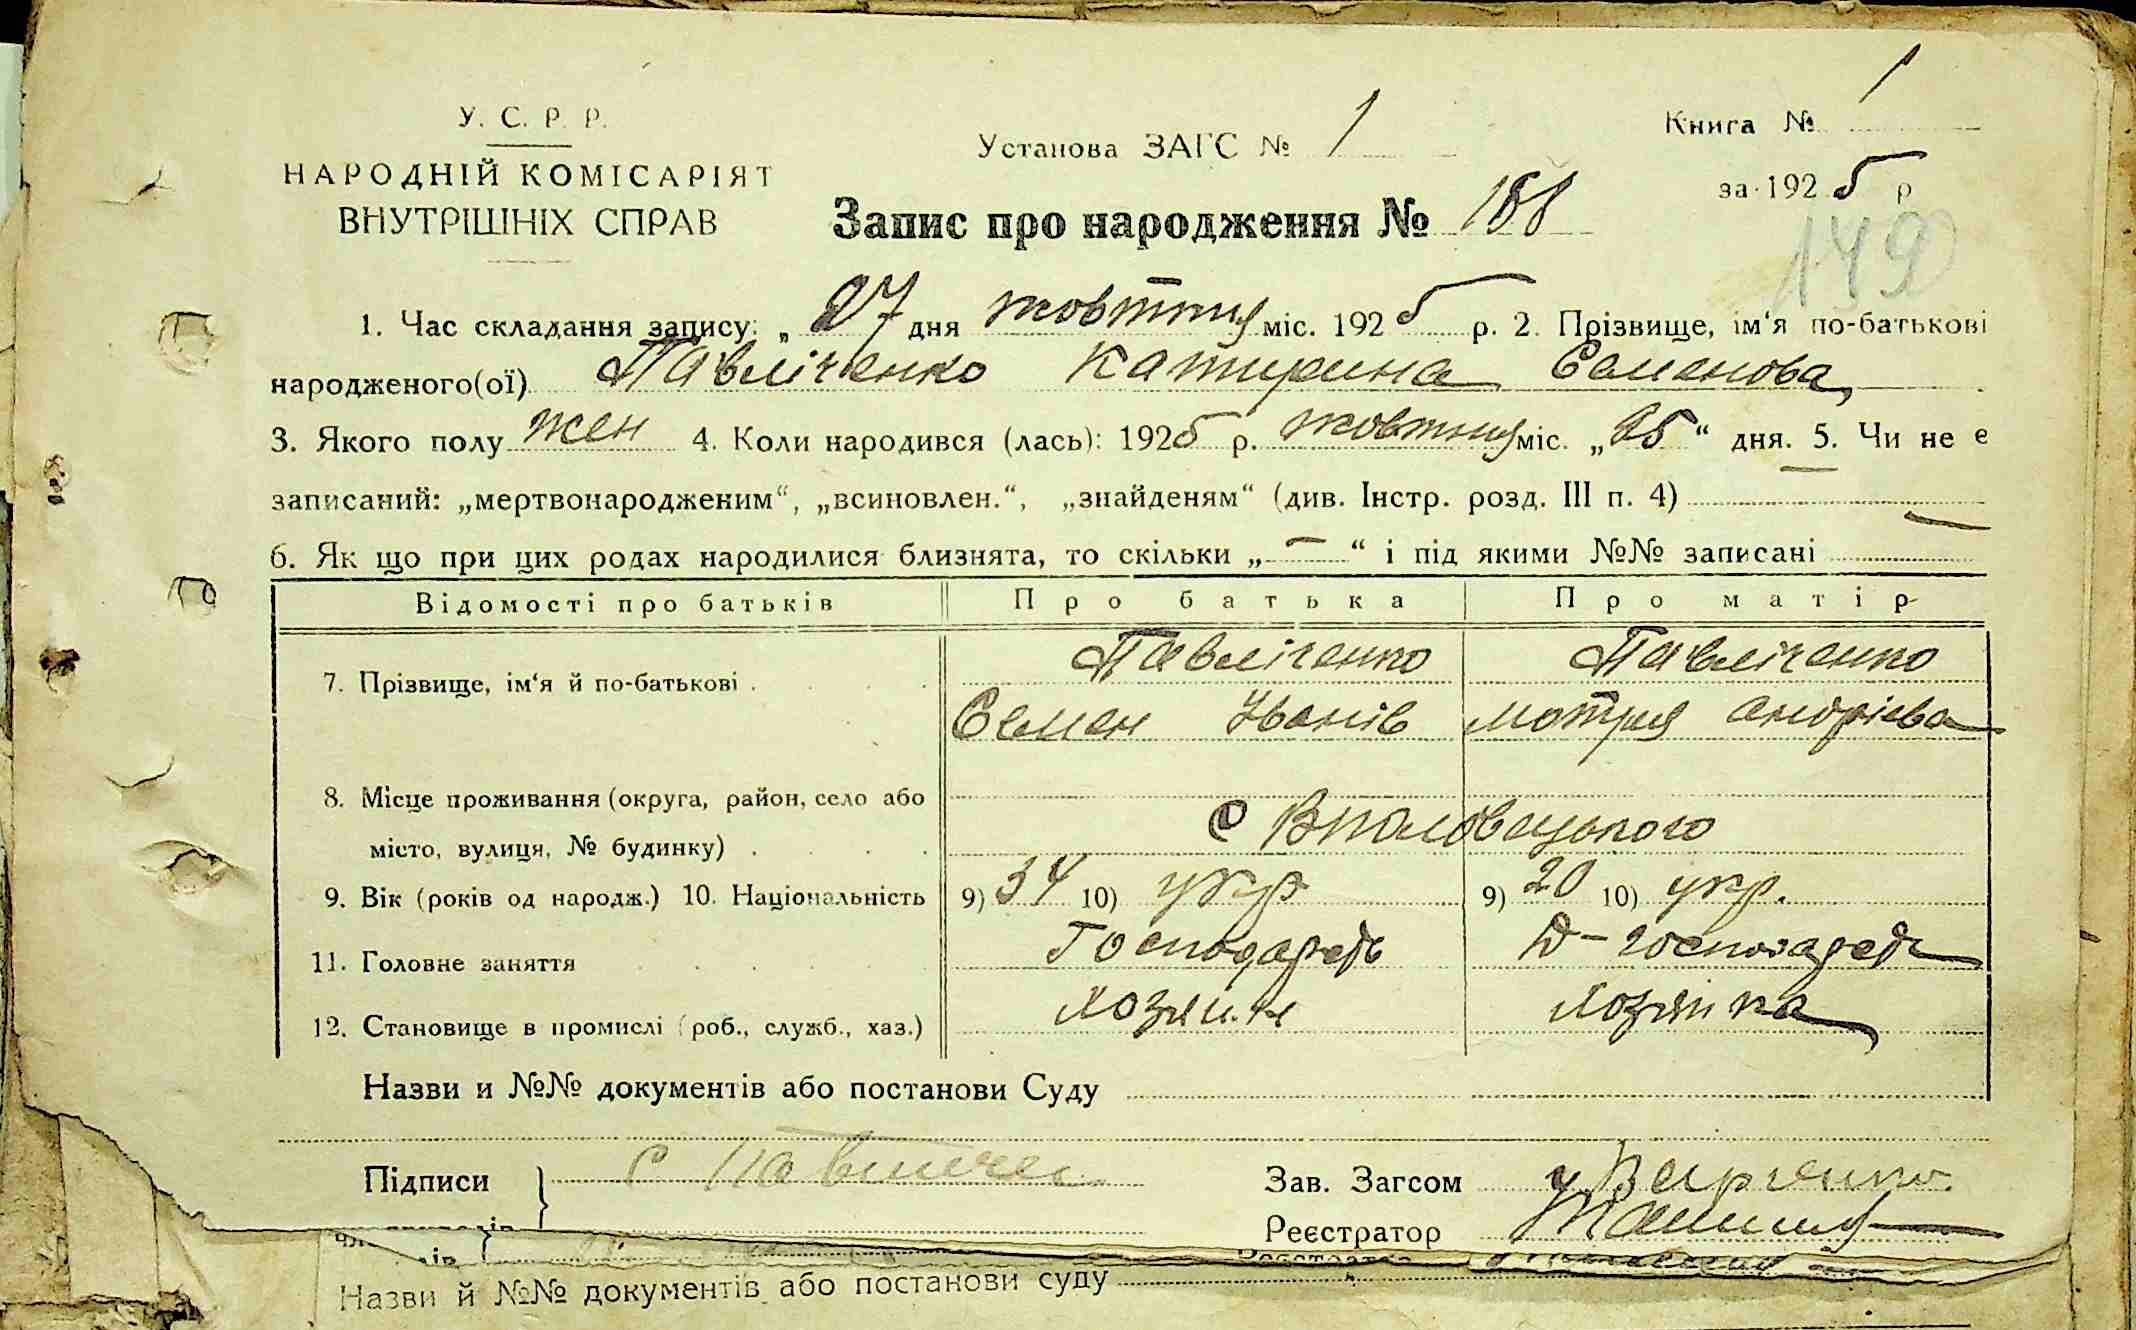 У. С. Р. Р.
НАРОДНІЙ КОМІСАРІЯТ
ВНУТРІШНІХ СПРАВ
Установа ЗАГС № 1
Книга № 1
за 1925 р
Запис про народження № 188
149
1. Час складання запису: „ 27 дня жовтня міс. 1925 р. 2. Прізвище, ім‘я по-батькові
народженого(ої) Павліченко Катирина Семенова
3. Якого полу жен 4. Коли народився (лась): 1925 р. жовтня міс. „25“ дня. 5. Чи не є
записаний: „мертвонародженим“, „всиновлен.“, „знайденям“ (див. Інстр. розд. III п. 4) —
6. Як що при цих родах народилися близнята, то скільки „—“ і під якими №№ записані —
Відомості про батьків Про батька Про матір
7. Прізвище, ім‘я й по-батькові . Павліченко Павліченко
Семен Іванів Мотря Андрієва
8. Місце проживання (округа, район, село або
місто, вулиця, № будинку) . с
9. Вік (років од народж.) 10. Національність 9) 34 10) укр 9) 20 10) укр.
11. Головне заняття Господарств Д-господарст
12. Становище в промислі (роб., служб., хаз.) хозяин хозяйка
Назви и №№ документів або постанови Суду
Підписи С Зав. Загсом
Реєстратор
Назви й №№ документів або постанови суду